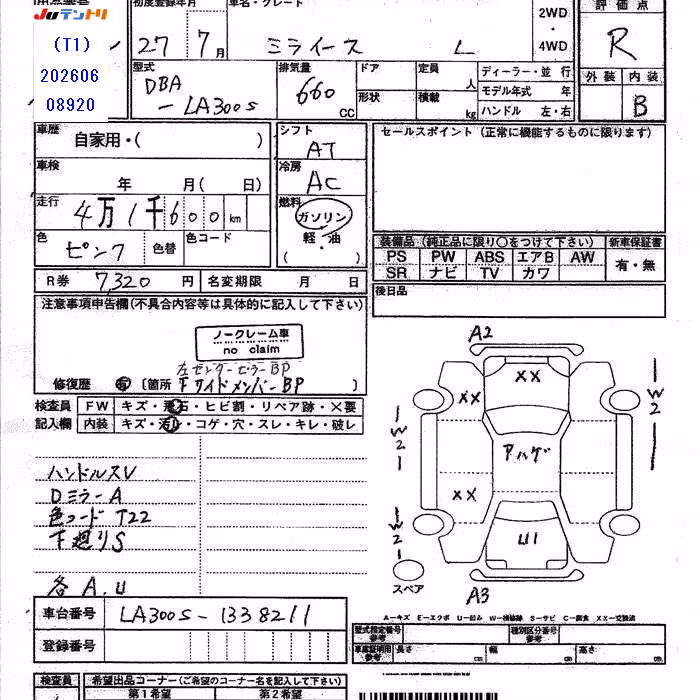 Juテントリ
(T1)
202606
08920
初度登録年月
車名・グレード
27年 7月
ミライース L
2WD
・
4WD
評価点
R
外装 内装
B
型式
DBA
-LA300S
排気量
660 CC
ドア
形状
定員
人
積載
kg
ディーラー・並行
モデル年式 年
ハンドル 左・右
車歴
自家用・( )
シフト
AT
セールスポイント (正常に機能するものに限ります)
車検
年 月( 日)
冷房
AC
走行
4万1千600km
燃料
ガソリン
軽・油
色
ピンク
色替
色コード
装備品 (純正品に限り○をつけて下さい)
新車保証書
PS PW ABS エアB AW
SR ナビ TV カワ
有・無
R券 7,320円
名変期限 月 日
後日品
注意事項申告欄(不具合内容等は具体的に記入して下さい)
ノークレーム車
no claim
左センターピラーBP
修復歴 有 [箇所 下サイドメンバーBP ]
検査員 FW キズ・飛石・ヒビ割・リペア跡・×要
記入欄 内装 キズ・汚れ・コゲ・穴・スレ・キレ・破レ
ハンドルスレ
DミラーA
色コード T22
下廻りS
各 A.U
A2
XX
XX
W2
W2
アハゲ
XX
W2
U1
スペア
A3
車台番号 LA300S-1338211
登録番号
A=キズ E=エクボ U=凹み W=補修跡 S=サビ C=腐食 XX=交換済
型式指定番号
参考
種別区分番号
参考
車庫証明用
参考
長さ cm
幅 cm
高さ cm
検査員
希望出品コーナー(ご希望のコーナー名を記入して下さい)
第1希望 第2希望